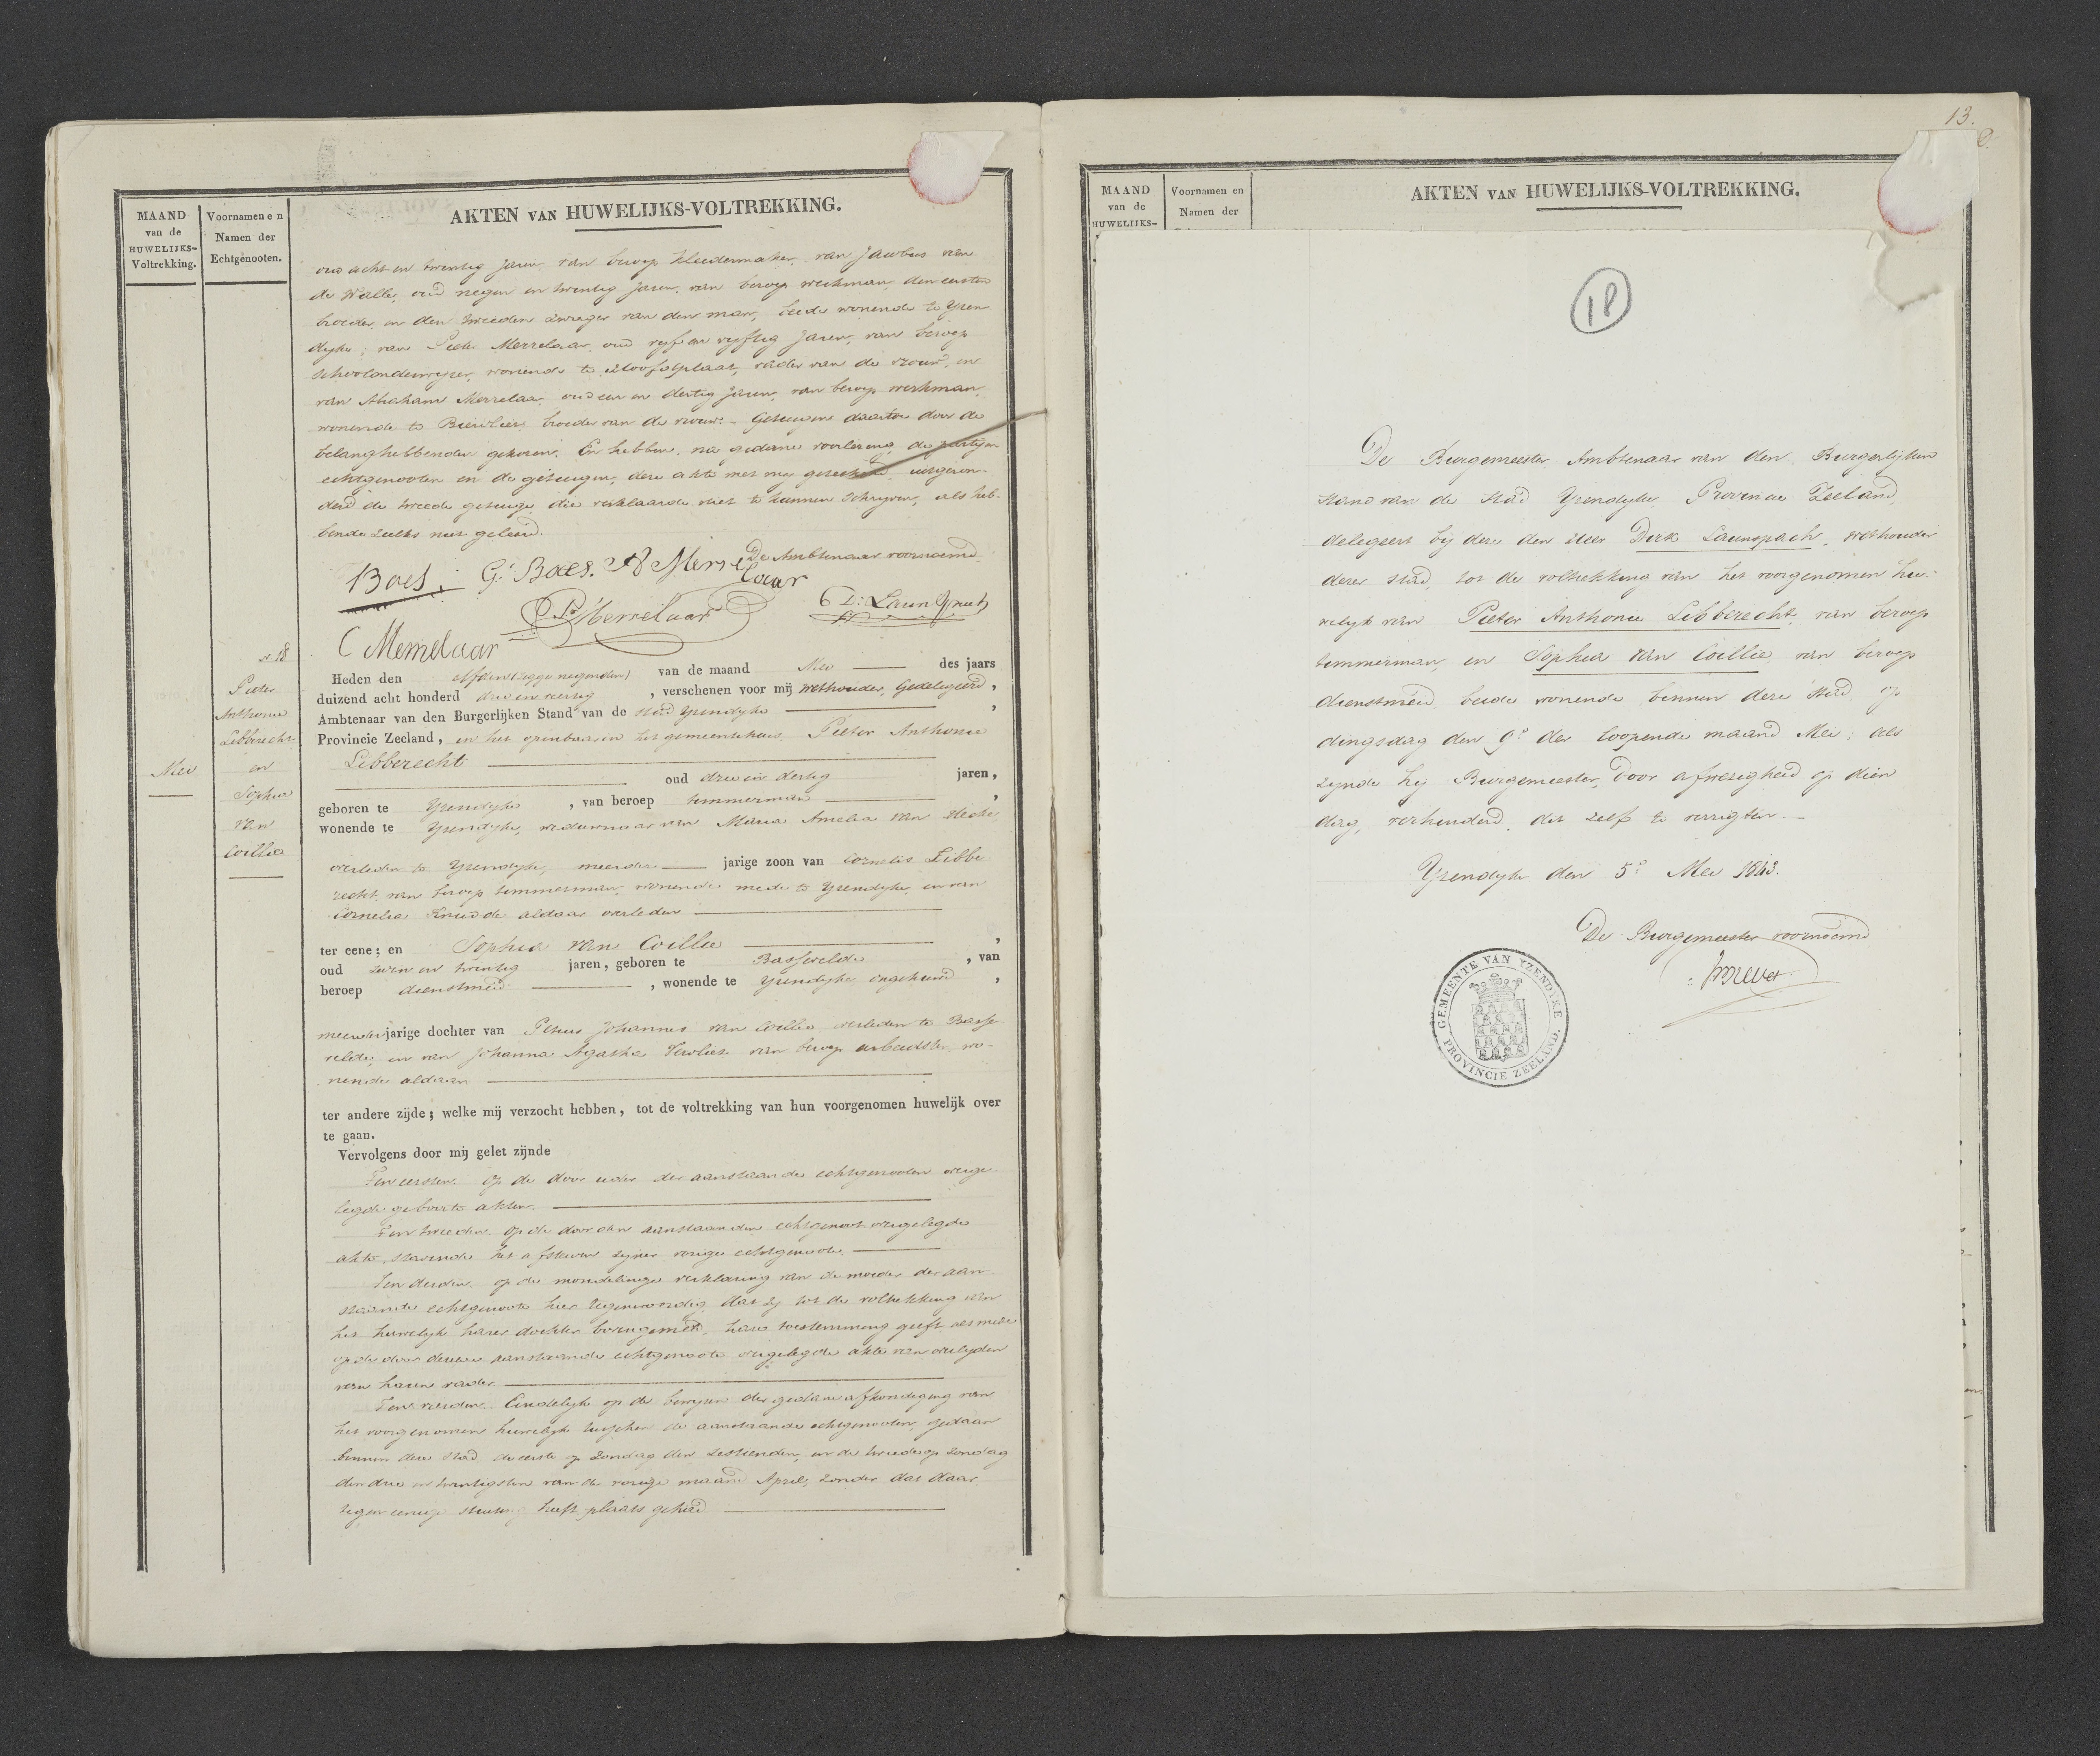 MAAND
van de
HUWELIJKS-
Voltrekking.
Voornamen en
Namen der
Echtgenooten.
AKTEN VAN HUWELIJKS-VOLTREKKING.
oud acht en twintig jaren, van beroep kleedermaker, van Jacobus van
de Walle, oud negen en twintig jaren, van beroep werkman, den eersten
broeder, en den tweeden zwager van den man, beide wonende te Yzen
dyke; van Pieter Merrelaar, oud vyf en vyftig jaren, van beroep
schoolonderwyzer, wonende te Hoofdplaat, vader van de vrouw, en
van Abraham Merrelaar, oud een en dertig jaren, van beroep werkman,
wonende te Biervliet, broeder van de vrouw. Getuigen daartoe door de
belanghebbenden gekozen. En hebben, na gedane voorlezing, de partyen
echtgenooten en de getuigen, deze akte met my geteekend, uitgezon-
derd de tweede getuige die verklaarde niet te kunnen schryven, als heb-
bende zulks niet geleerd.
De Ambtenaar voornoemd
Boes. G. Boes. A Merre
laar
P Merrelaar
D: Launspach
C Merrelaar
No. 18
Pieter
Anthonie
Libberecht
en
Sophia
van
Coillie
Mei
Heden den elfden (zegge negenden) van de maand Mei des jaars
duizend acht honderd drie en veertig, verschenen voor mij wethouder, gedelegeerd,
Ambtenaar van den Burgerlijken Stand van de stad Yzendyke,
Provincie Zeeland, in het openbaar in het gemeentehuis Pieter Anthonie
Libberecht
oud drie en dertig jaren,
geboren te Yzendyke, van beroep timmerman,
wonende te Yzendyke, weduwnaar van Maria Amelia van
overleden te Yzendyke, meerder jarige zoon van Cornelis Libbe
recht, van beroep timmerman, wonende mede te Yzendyke, en van
Cornelia aldaar overleden
ter eene; en Sophia van Coillie,
oud zeven en twintig jaren, geboren te Bassevelde, van
beroep dienstmeid, wonende te Yzendyke ongehuwd,
meerderjarige dochter van Petrus Johannes van Coillie overleden te Basse
velde, en van Johanna Agatha Vervliet van beroep arbeidster, wo-
nende aldaar
ter andere zijde; welke mij verzocht hebben, tot de voltrekking van hun voorgenomen huwelijk over
te gaan.
Vervolgens door mij gelet zijnde
Ten eersten op de door ieder der aanstaande echtgenooten overge-
legde geboorte akten.
Ten tweeden op de door den aanstaanden echtgenoot overgelegde
akte, stavende het afsterven zyner vorige echtgenoote.
Ten derden op de mondelinge verklaring van de moeder der aan-
staande echtgenoote hier tegenwoordig, dat zy tot de voltrekking van
het huwelyk harer dochter hare toestemming geeft, als mede
op de door dezen aanstaande echtgenoote overgelegde akte van overlyden
van haren vader
Ten vierden Eindelyk op de bewyzen der gedane afkondiging van
het voorgenomen huwelyk tusschen de aanstaande echtgenooten, gedaan
binnen deze stad de eerste op zondag den zestienden, en de tweede op zondag
den drie en twintigsten van de vorige maand April, zonder dat daar
tegen eenige stuiting heeft plaats gehad
13.
MAAND
van de
HUWELIJKS-
Voornamen en
Namen der
AKTEN VAN HUWELIJKS-VOLTREKKING.
18
De Burgemeester Ambtenaar van den Burgerlyken
stand van de stad Yzendyke, Provincie Zeeland,
delegeert by deze den Heer Dirk Launspach, wethouder
dezer stad, tot de voltrekking van het voorgenomen hu-
welyk van Pieter Anthonie Libberecht, van beroep
timmerman, en Sophia van Coillie, van beroep
dienstmeid, beide wonende binnen deze stad, op
dingsdag den 9e der loopende maand Mei; als
zynde hy Burgemeester, door afwezigheid op dien
dag, verhinderd, dit zelf te verrigten.
Yzendyke den 5e Mei 1843.
De Burgemeester voornoemd
GEMEENTE VAN YZENDYKE
PROVINCIE ZEELAND.